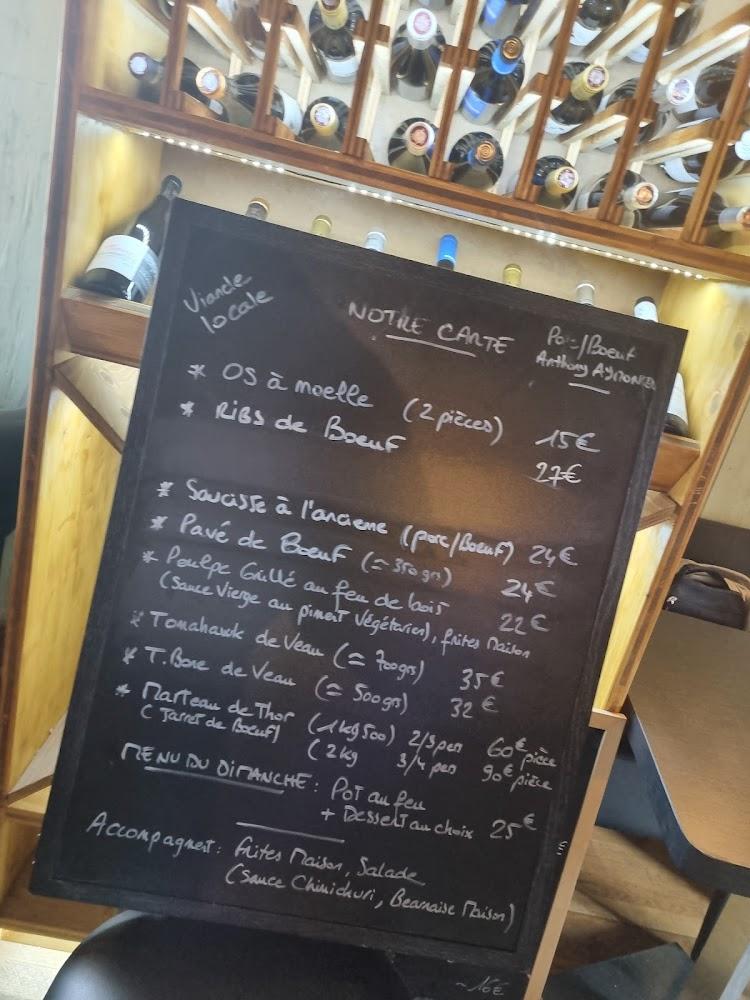 Viande
locale
NOTRE CARTE
Porc/Boeuf
Anthony
* OS à moelle (2 pièces) 15€
* RIBS de Boeuf 27€
* Saucisse à l'ancienne (porc/Boeuf) 24€
* Pavé de Boeuf (≃ 350grs) 24€
* Poulpe Grillé au feu de bois 22€
(Sauce Vierge au piment Végétarien), frites Maison
* Tomahawk de Veau (≃ 700grs) 35€
* T.Bone de Veau (≃ 500grs) 32€
* Marteau de Thor (1kg500) 2/3 pers 60€ pièce
(Jarret de Boeuf) (2kg 3/4 pers 90€ pièce
MENU DU DIMANCHE : Pot au feu
+ Dessert au choix 25€
Accompagnement : frites Maison, Salade
(Sauce Chimichuri, Bearnaise Maison)
~16€